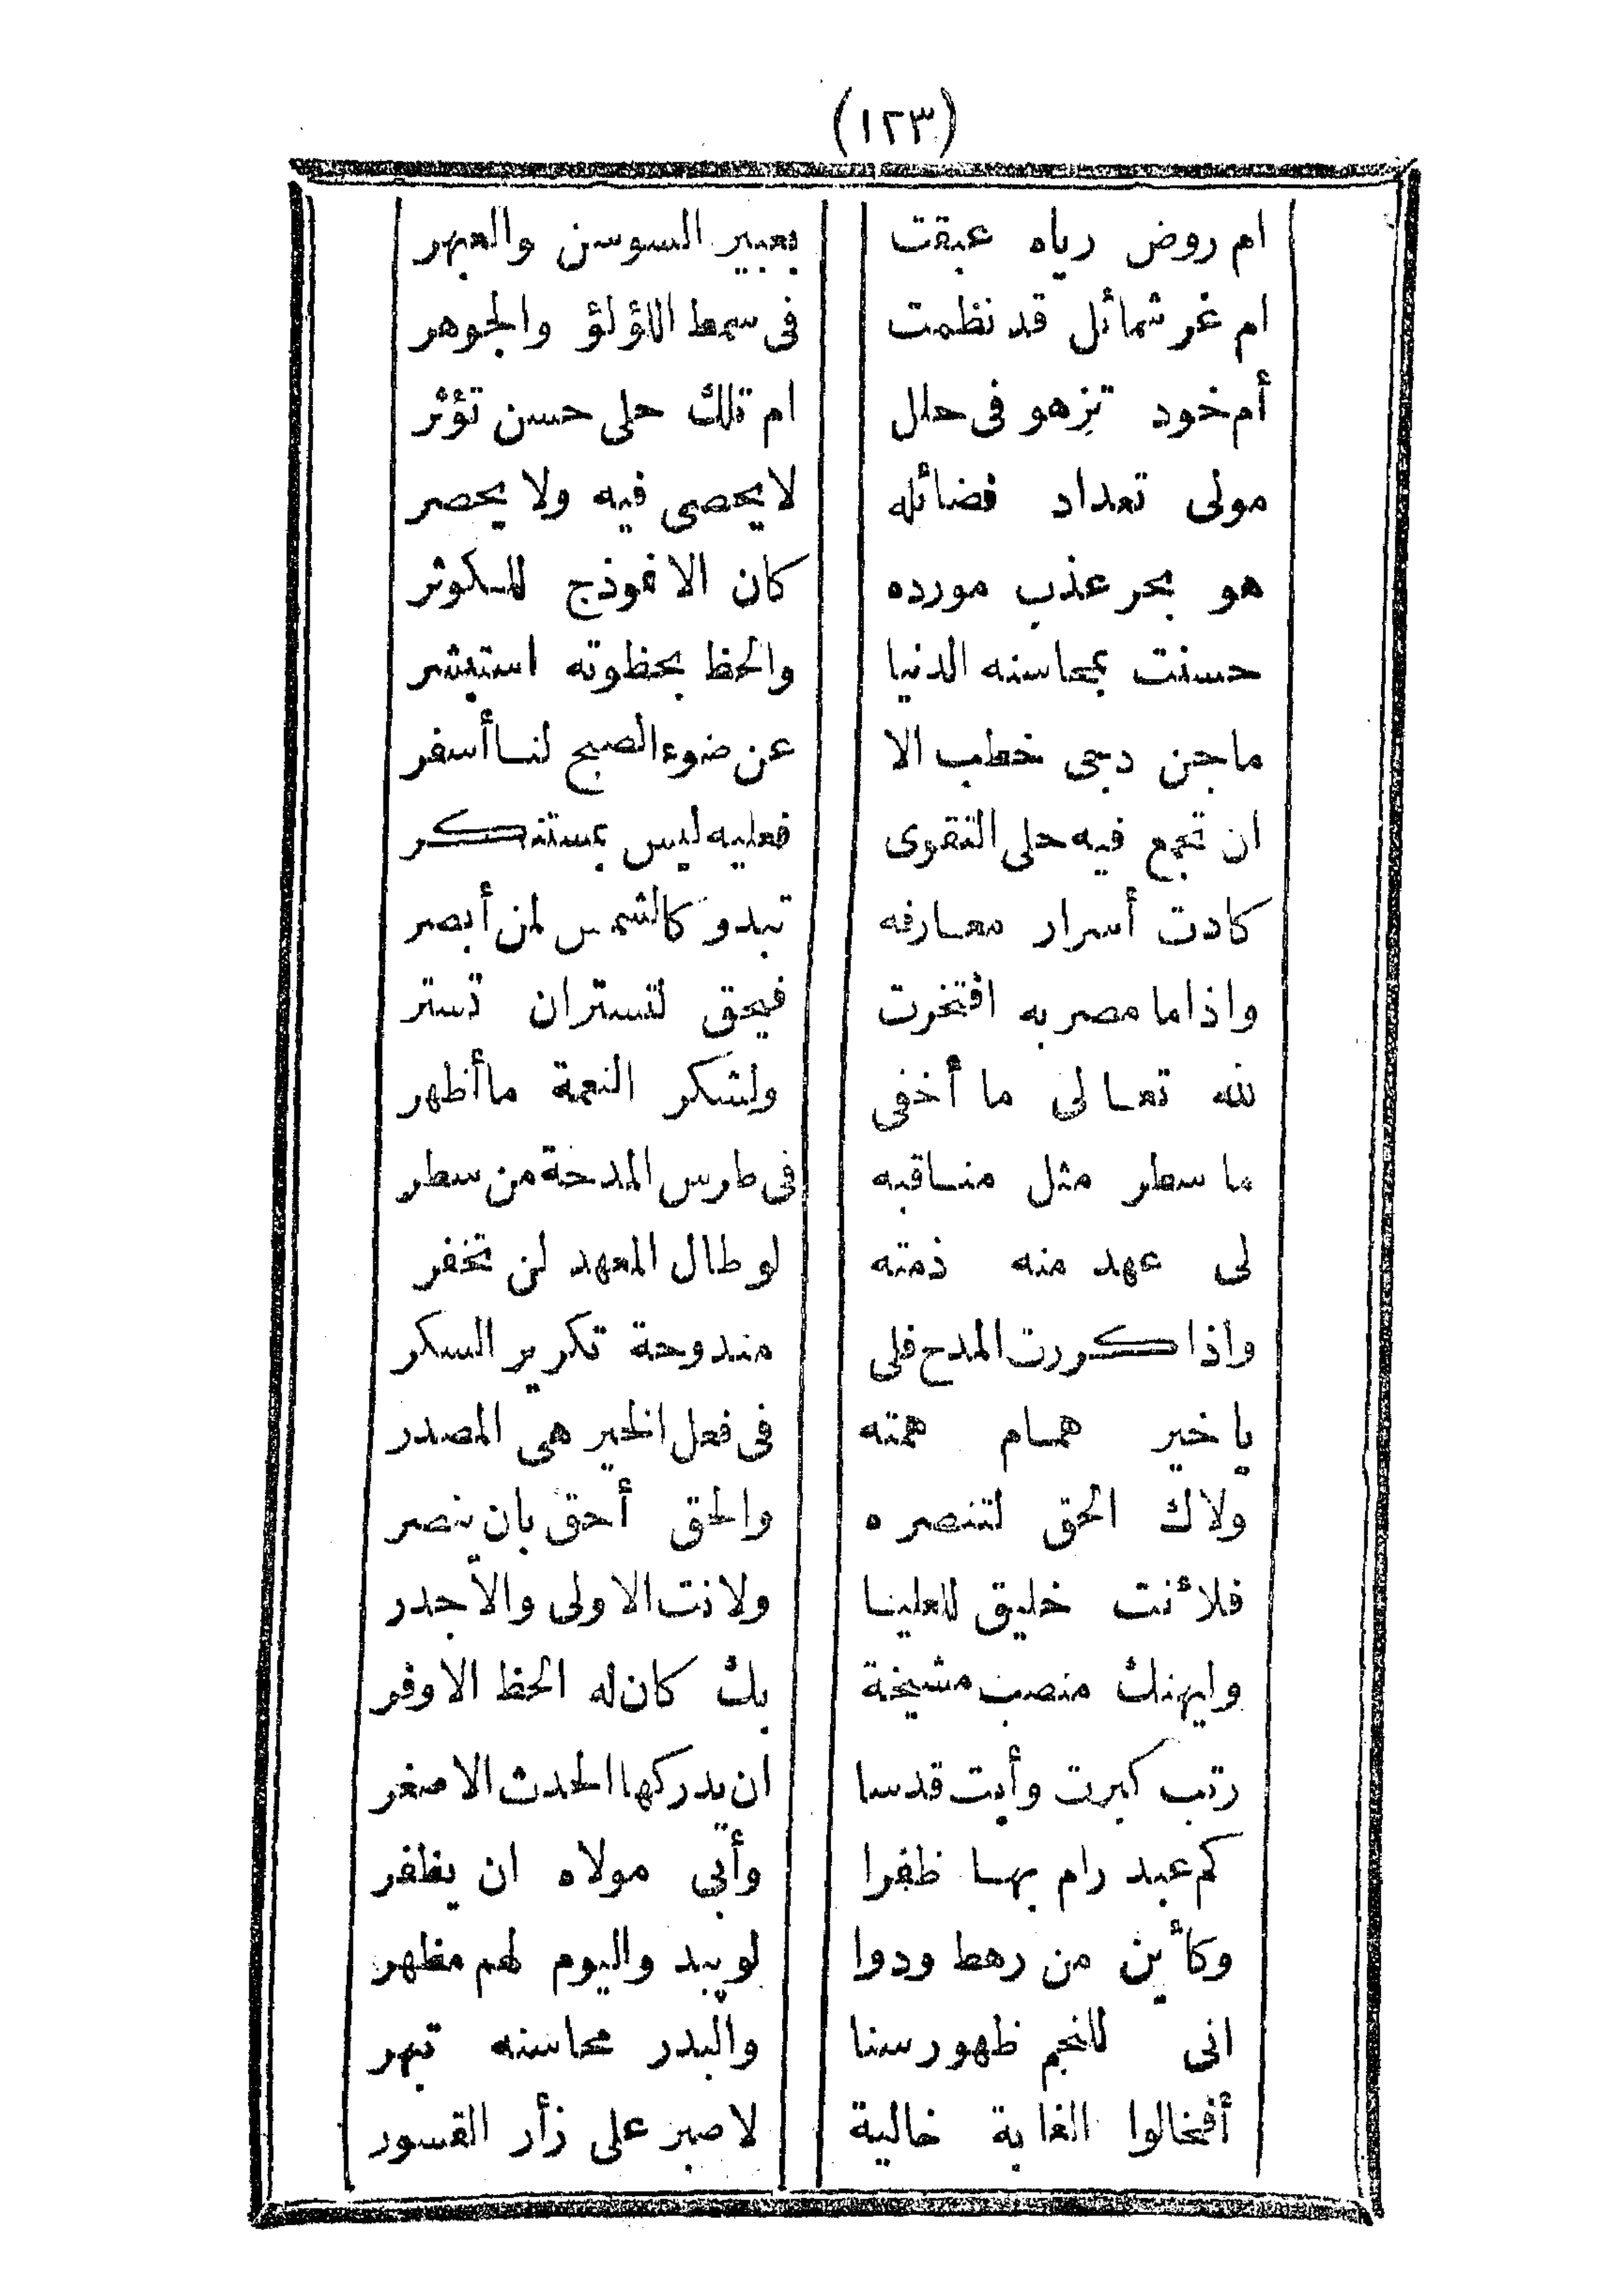 (١٢٣)
ام روض رياه عبقت بعبير السوسن والعبهر
ام غر شمائل قد نظمت فى سمط اللؤلؤ والجوهر
أم خود تزهو فى حلل ام تلك حلى حسن تؤثر
مولى تعداد فضائله لا يحصى فيه ولا يحصر
هو بحر عذب مورده كان الانموذج للكوثر
حسنت بمحاسنه الدنيا والحظ بحظوته استبشر
ما جن دجى خطب الا عن ضوء الصبح لنا أسفر
ان تجمع فيه حلى التقوى فعليه ليس بمستنكر
كادت أسرار معارفه تبدو كالشمس لمن أبصر
واذا ما مصر به افتخرت فيحق لتستر ان تستر
لله تعالى ما أخفى ولشكر النعمة ما أظهر
ما سطر مثل مناقبه فى طرس المدحة من سطر
لى عهد منه ذمته لو طال المعهد لن تخفر
واذا كررت المدح فلى مندوحة تكرير السكر
يا خير همام همته فى فعل الخير هى المصدر
ولاك الحق لتنصره والحق أحق بان ينصر
فلأنت خليق للعليا ولانت الاولى والاجدر
وليهنك منصب مشيخة بك كان له الحظ الاوفر
رتب كبرت وأبت قدسا ان يدركها الحدث الاصغر
كم عبد رام بها ظفرا وأبى مولاه ان يظفر
وكأين من رهط ودوا لو يبدو اليوم لهم مظهر
انى للنجم ظهور سنا والبدر محاسنه تبهر
أفخالوا الغابة خالية لا صبر على زأر القسور